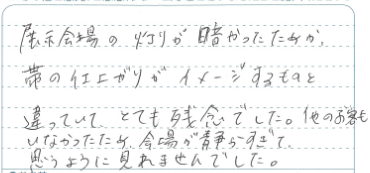 展示会場の灯りが暗かったためか、
帯の仕上がりがイメージするものと
違っていて、とても残念でした。他のお客も
いなかったため、会場が静かすぎて、
思うように見れませんでした。